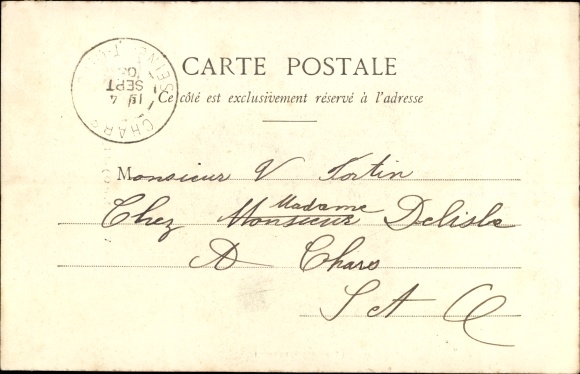 CARTE POSTALE
Ce côté est exclusivement réservé à l'adresse
CHARS
4
SEPT
SEINE
Monsieur V Fortin
Chez Monsieur Madame Delisle
A Chars
S et O